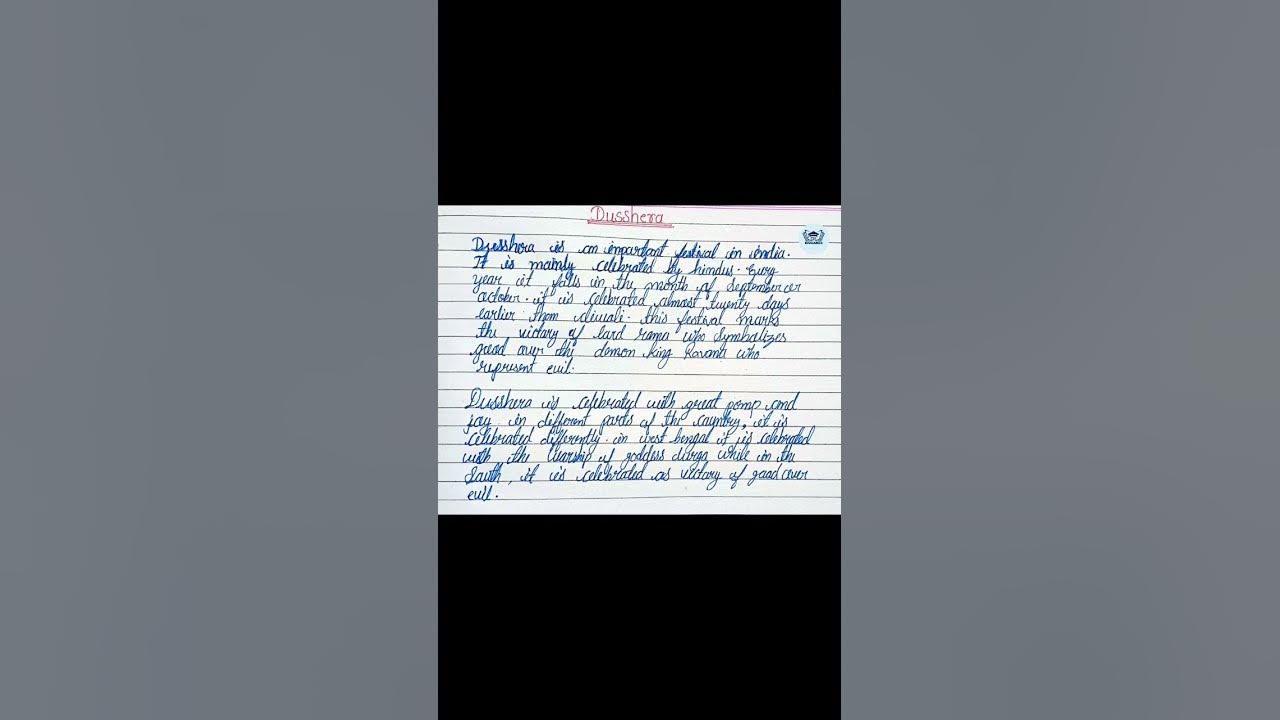 Dusshera
Dusshera is an important festival in india.
It is mainly celebrated by hindus. Every
year it falls in the month of September or
october. it is celebrated almost twenty days
earlier than diwali. this festival marks
the victory of lord rama who symbolizes
good over the demon king Ravana who
represent evil.
Dusshera is celebrated with great pomp and
joy in different parts of the country, it is
celebrated differently. in west bengal it is celebrated
with the worship of goddess durga while in the
South, it is celebrated as victory of good over
evil.